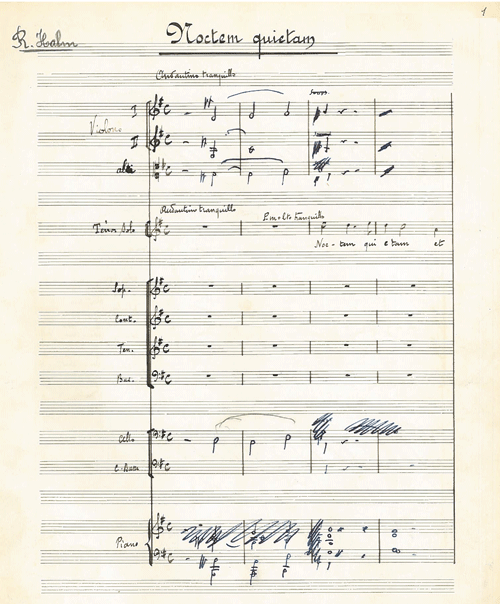 1
R. Hahn
Noctem quietam
Andantino tranquillo
I
Violons
II
alti
Andantino tranquillo
E molto tranquillo
Ténor Solo
Noc-tem qui e tam et
Sop.
Cont.
Ten.
Bas.
Cello
C. Bassi
Piano